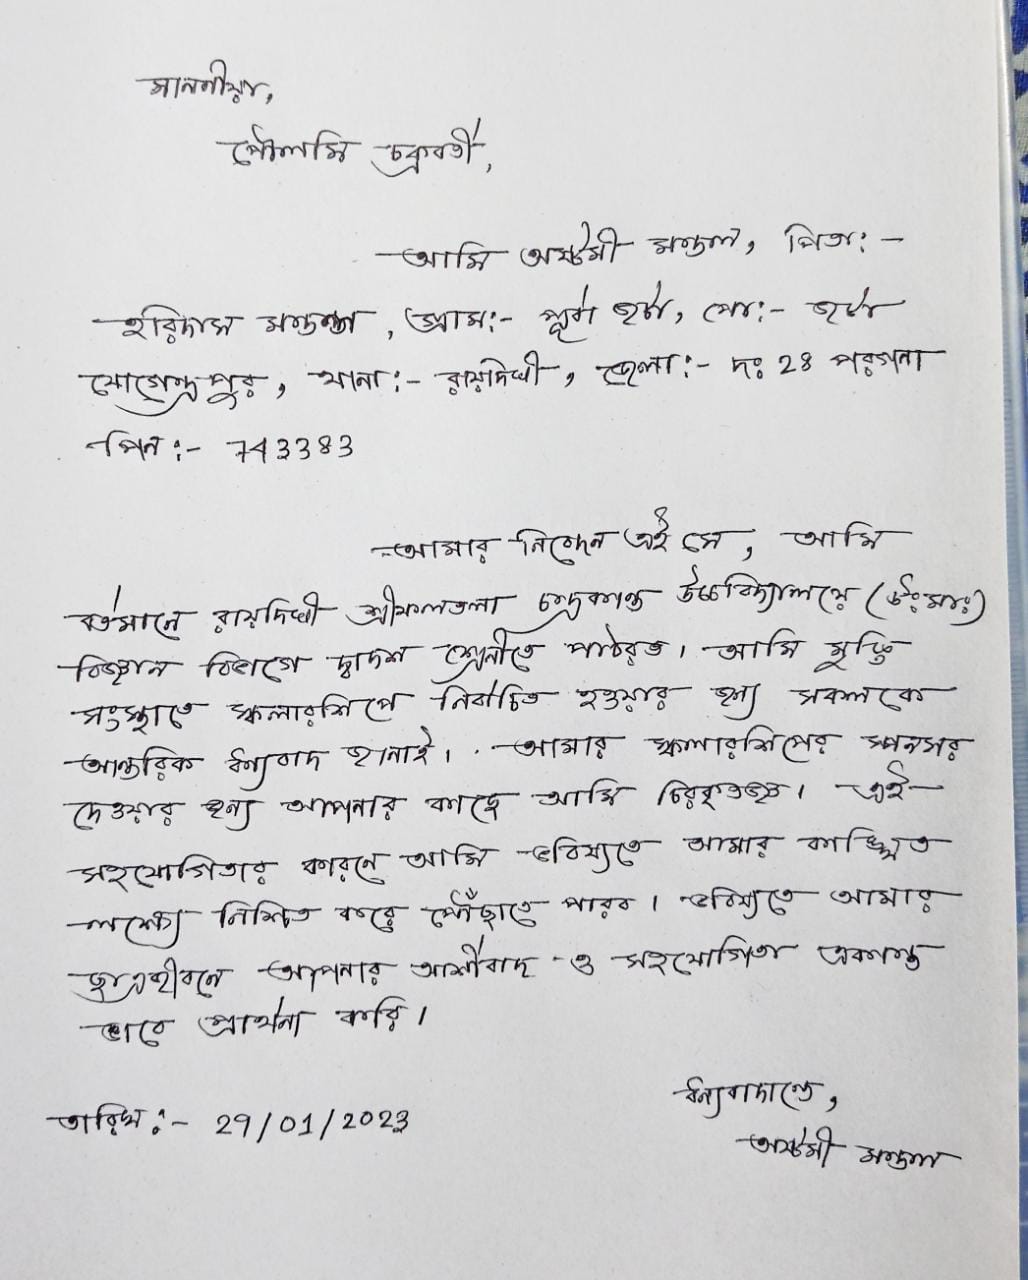 মাননীয়া,
পৌলমি চক্রবর্তী,
আমি অষ্টমী মন্ডল, পিতা:-
হরিদাস মন্ডল, গ্রাম:- পূর্ব জটা, পো:- জটা
যোগেন্দ্রপুর, থানা:- রায়দিঘী, জেলা:- দঃ 24 পরগনা
পিন:- 743383
আমার নিবেদন এই যে, আমি
বর্তমানে রায়দিঘী শ্রীফলতলা চন্দ্রকান্ত উচ্চবিদ্যালয়ে (উঃমাঃ)
বিজ্ঞান বিভাগে দ্বাদশ শ্রেনীতে পাঠরত। আমি মুক্তি
সংস্থাতে স্কলারশিপে নির্বাচিত হওয়ার জন্য সকলকে
আন্তরিক ধন্যবাদ জানাই। আমার স্কলারশিপের স্পনসর
দেওয়ার জন্য আপনার কাছে আমি চিরকৃতজ্ঞ। এই
সহযোগিতার কারনে আমি ভবিষ্যতে আমার কাঙ্ক্ষিত
লক্ষ্যে নিশ্চিত করে পৌঁছাতে পারব। ভবিষ্যতে আমার
ছাত্রজীবনে আপনার আশীর্বাদ ও সহযোগিতা একান্ত
ভাবে প্রার্থনা করি।
ধন্যবাদান্তে,
তারিখ:- 29/01/2023
অষ্টমী মন্ডল